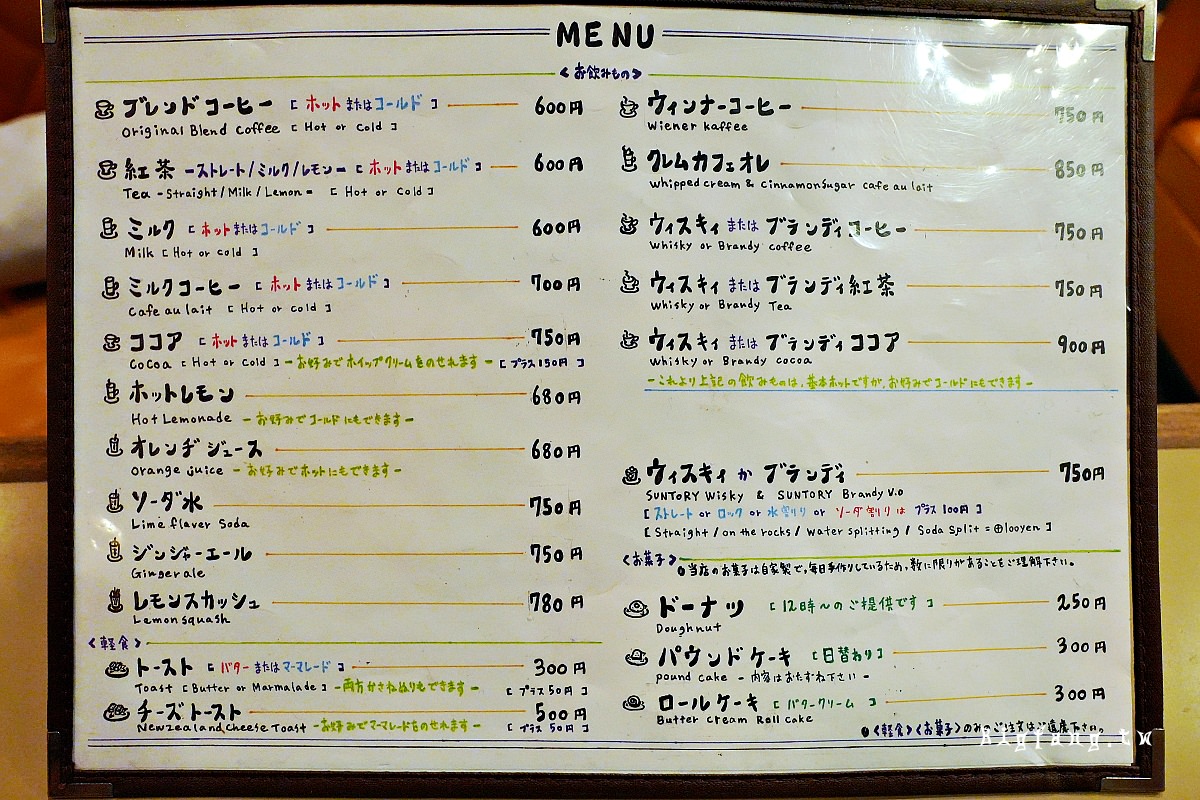 MENU
<お飲みもの>
ブレンドコーヒー [ ホットまたはコールド ] 600円
Original Blend Coffee [ Hot or Cold ]
紅茶 -ストレート/ミルク/レモン- [ ホットまたはコールド ] 600円
Tea -Straight/Milk/Lemon- [ Hot or Cold ]
ミルク [ ホットまたはコールド ] 600円
Milk [ Hot or cold ]
ミルクコーヒー [ ホットまたはコールド ] 700円
Cafe au lait [ Hot or cold ]
ココア [ ホットまたはコールド ] 750円
Cocoa [ Hot or Cold ] -お好みでホイップクリームをのせれます- [ プラス150円 ]
ホットレモン 680円
Hot Lemonade -お好みでコールドにもできます-
オレンヂジュース 680円
Orange juice -お好みでホットにもできます-
ソーダ水 750円
Lime flaver Soda
ジンジャーエール 750円
Gingerale
レモンスカッシュ 780円
Lemonsquash
<軽食>
トースト [ バターまたはマーマレード ] 300円
Toast [ Butter or Marmalade ] -両方かさねぬりもできます- [ プラス50円 ]
チーズトースト 500円
Newzealand Cheese Toast -お好みでマーマレードものせれます- [ プラス50円 ]
ウィンナーコーヒー 750円
Wiener kaffee
クレムカフェオレ 850円
whipped cream & cinnamonsugar cafe au lait
ウィスキィまたはブランディコーヒー 750円
whisky or Brandy coffee
ウィスキィまたはブランディ紅茶 750円
whisky or Brandy Tea
ウィスキィまたはブランディココア 900円
whisky or Brandy cocoa
-これより上記の飲みものは、基本ホットですが、お好みでコールドにもできます-
ウィスキィかブランディ 750円
SUNTORY Wisky & SUNTORY Brandy V.O
[ ストレート or ロック or 水割り or ソーダ割りはプラス100円 ]
[ Straight / on the rocks / water splitting / Soda Split = ⊕100yen ]
<お菓子>
●当店のお菓子は自家製で、毎日手作りしているため、数に限りがあることをご理解下さい。
ドーナツ [ 12時〜のご提供です ] 250円
Doughnut
パウンドケーキ [日替わり] 300円
pound cake -内容はおたずね下さい-
ロールケーキ [ バタークリーム ] 300円
Butter cream Roll cake
●<軽食><お菓子>のみのご注文はご遠慮下さい。